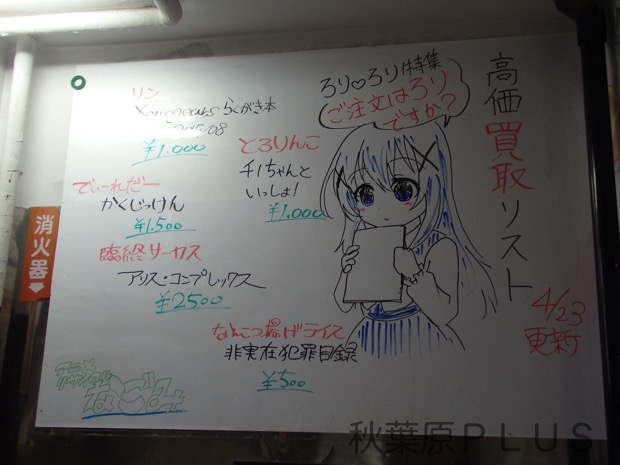 高価買取リスト
4/23
更新
ろり♡ろり特集
ご注文はろり
ですか?
リン
らくがき本
2015/08
¥1.000
とろりんこ
チノちゃんと
いっしょ!
¥1.000
でぃーれだー
かくじっけん
¥1.500
臨終サーカス
アリス・コンプレックス
¥2500
なんこつ揚げライス
非実在犯罪目録
¥500
消火器
秋葉原PLUS